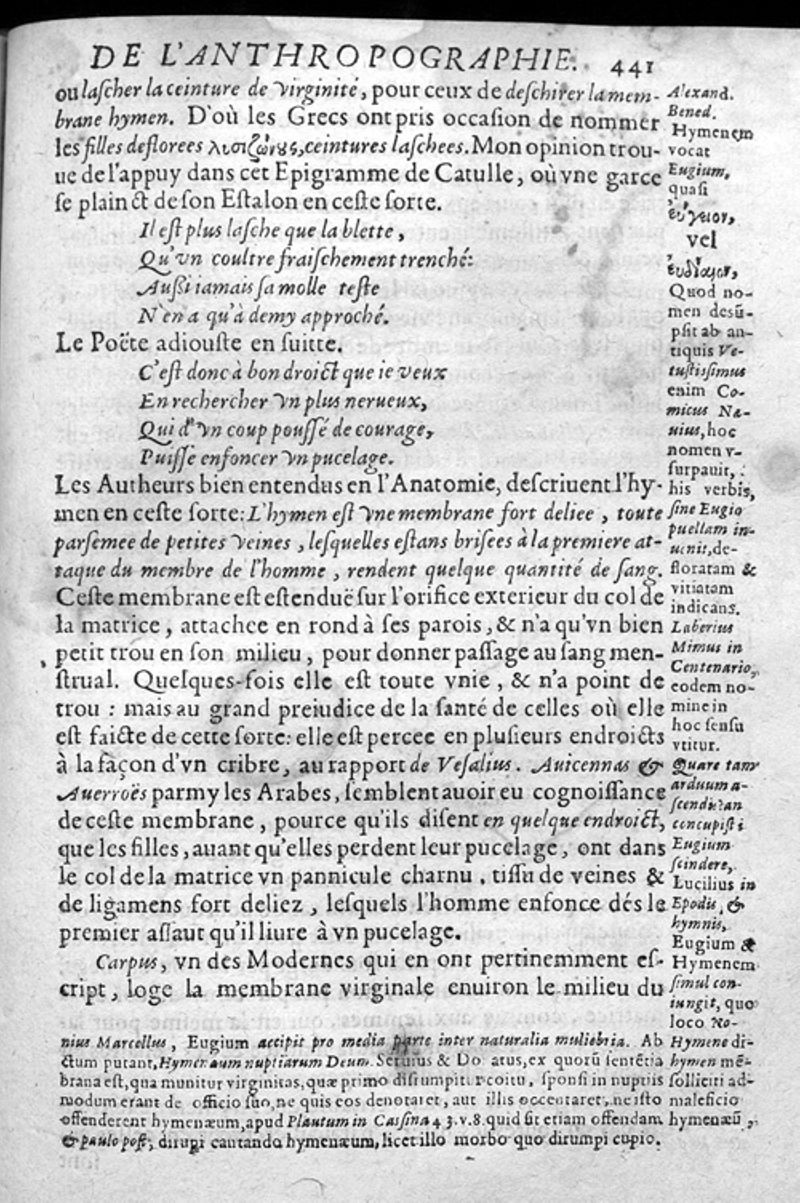 DE L'ANTHROPOGRAPHIE. 441
ou lascher la ceinture de virginité, pour ceux de deschirer la mem-
brane hymen. D'où les Grecs ont pris occasion de nommer
les filles deflorees λυσιζώνους, ceintures laschees. Mon opinion trou-
ue de l'appuy dans cet Epigramme de Catulle, où vne garce
se plainct de son Estalon en ceste sorte.
Il est plus lasche que la blette,
Qu'vn coultre fraischement trenché:
Aussi iamais sa molle teste
N'en a qu'à demy approché.
Le Poëte adiouste en suitte.
C'est donc à bon droict que ie veux
En rechercher vn plus nerueux,
Qui d'vn coup poussé de courage,
Puisse enfoncer vn pucelage.
Les Autheurs bien entendus en l'Anatomie, descriuent l'hy-
men en ceste sorte: L'hymen est vne membrane fort deliee, toute
parsemee de petites veines, lesquelles estans brisees à la premiere at-
taque du membre de l'homme, rendent quelque quantité de sang.
Ceste membrane est estenduë sur l'orifice exterieur du col de
la matrice, attachee en rond à ses parois, & n'a qu'vn bien
petit trou en son milieu, pour donner passage au sang men-
strual. Quelques-fois elle est toute vnie, & n'a point de
trou: mais au grand preiudice de la santé de celles où elle
est faicte de cette sorte: elle est percee en plusieurs endroicts
à la façon d'vn cribre, au rapport de Vesalius. Auicennas &
Auerroës parmy les Arabes, semblent auoir eu cognoissance
de ceste membrane, pource qu'ils disent en quelque endroict,
que les filles, auant qu'elles perdent leur pucelage, ont dans
le col de la matrice vn pannicule charnu, tissu de veines &
de ligamens fort deliez, lesquels l'homme enfonce dés le
premier assaut qu'il liure à vn pucelage.
Carpus, vn des Modernes qui en ont pertinemment es-
cript, loge la membrane virginale enuiron le milieu du
Alexand.
Bened.
Hymenem
vocat
Eugium,
quasi
ἐύγειον,
vel
ἐυδίαιον,
Quod no-
men desũ-
psit ab an-
tiquis Ve-
tustissimus
enim Co-
micus Næ-
uius, hoc
nomen v-
surpauit,
his verbis,
sine Eugio
puellam in-
uenit, de-
floratam &
vitiatam
indicans.
Laberius
Mimus in
Centenario,
eodem no-
mine in
hoc sensu
vtitur.
Quare tam
arduum a-
scendis? an
concupisti
Eugium
scindere,
Lucilius in
Epodis, &
hymnis,
Eugium &
Hymenem
simul con-
iungit, quo
loco No-
nius Marcellus, Eugium accipit pro media parte inter naturalia muliebria. Ab Hymene di-
ctum putant, Hymenæum nuptiarum Deum. Seruius & Donatus, ex quorũ sententia hymen mẽ-
brana est, qua munitur virginitas, quæ primo disrumpitur coitu, sponsi in nuptiis solliciti ad-
modum erant de officio suo, ne quis eos denotaret, aut illis occentaret, ne isto maleficio
offenderent hymenæum, apud Plautum in Cassina 4 3. v. 8. quid sit etiam offendam hymenæũ,
& paulo post, dirugi cantando hymenæum, licet illo morbo quo dirumpi cupio.